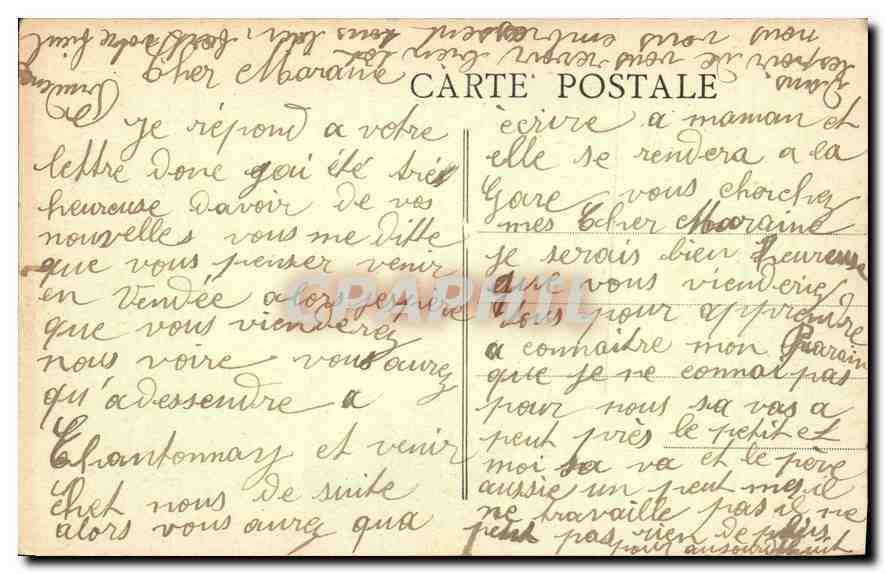 Cher Maraine
CARTE POSTALE
Je répond a votre
lettre donc gai été très
heureuse davoir de vos
nouvelles vous me ditte
que vous penser venir
en Vendée alors jespère
que vous vienderez
nous voire vous aurez
qu'a dessendre a
Chantonnay et venir
chet nous de suite
alors vous aurez qua
écrire a maman et
elle se rendera a la
Gare vous cherchez
mes Cher Maraine
je serais bien heureuse
que vous vienderiez
tous pour apprendre
a connaitre mon Parain
que je ne connai pas
pour nous sa vas a
peut près le petit et
moi sa va et le père
aussie un peut mes il
ne travaille pas il ne
peut pas rien de plus
pour aujourdhuit
Dans lespoir de vous revoir bien tot
nous vous embrassent tous
votre
CPAPHIL